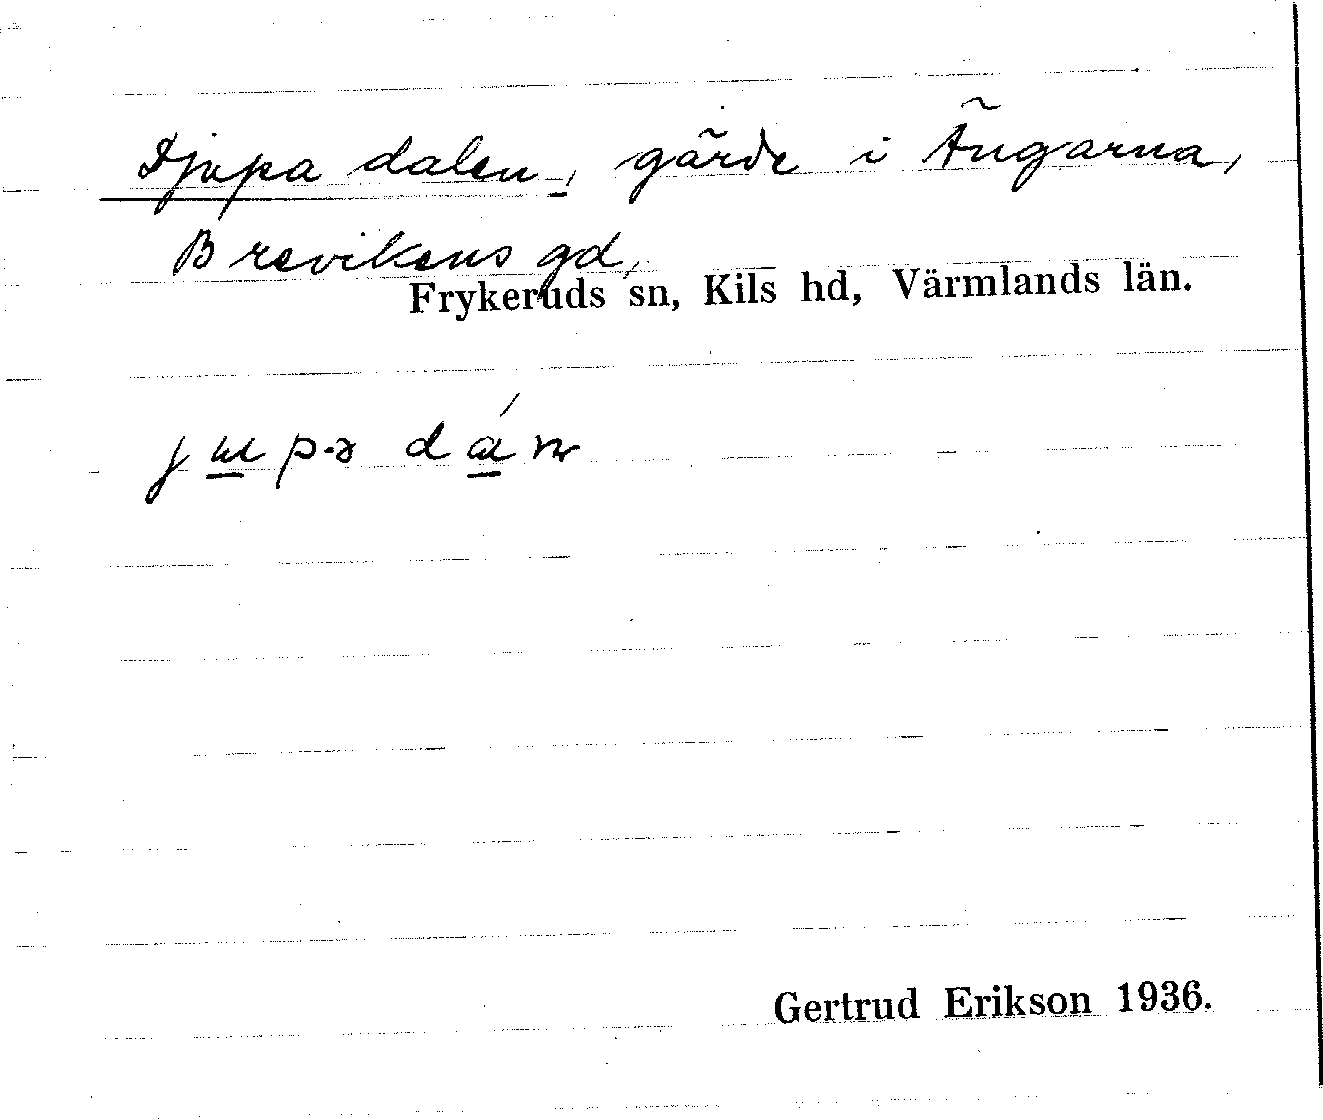 Djupa dalen, gärde i Ängarna,
Brevikens gd,
Frykeruds sn, Kils hd, Värmlands län.
Gertrud Erikson 1936.